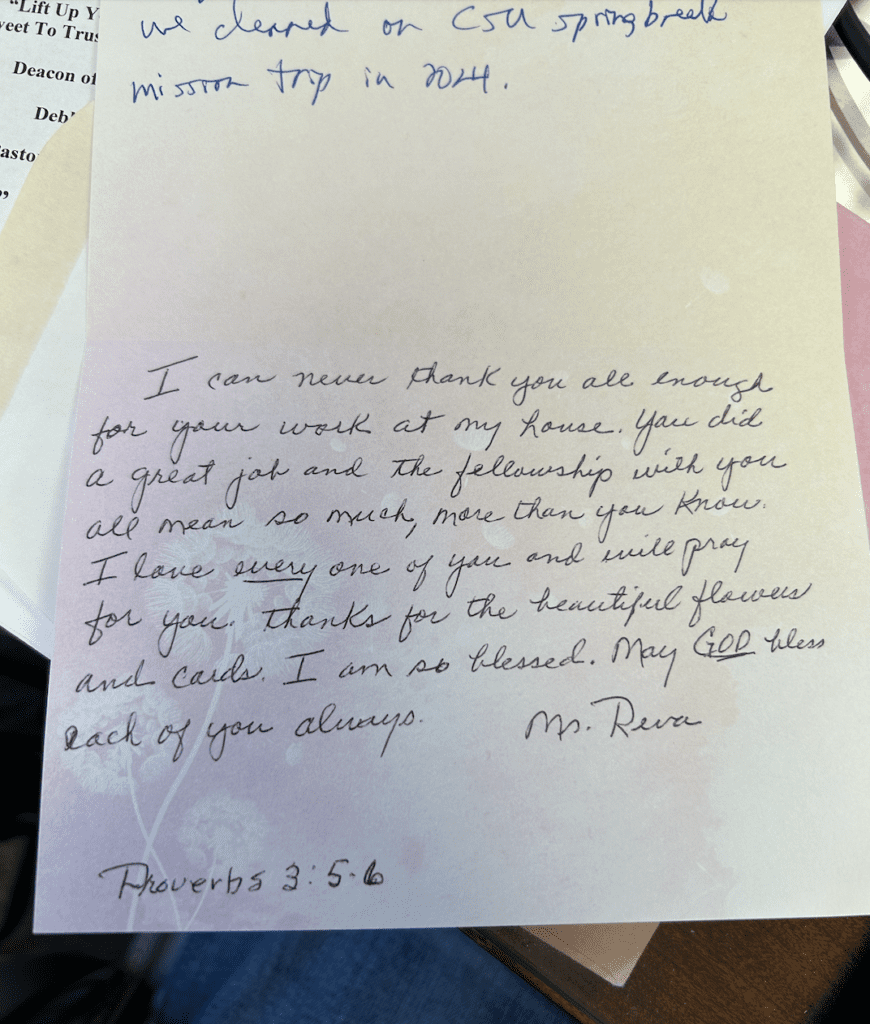 "Lift Up Y
veet To Trus
Deacon of
Deb'
asto
"
we cleaned on CSU spring break
mission trip in 2024.
I can never thank you all enough
for your work at my house. You did
a great job and the fellowship with you
all mean so much, more than you know.
I love every one of you and will pray
for you. Thanks for the beautiful flowers
and cards. I am so blessed. May GOD bless
each of you always. Ms. Reva
Proverbs 3:5-6